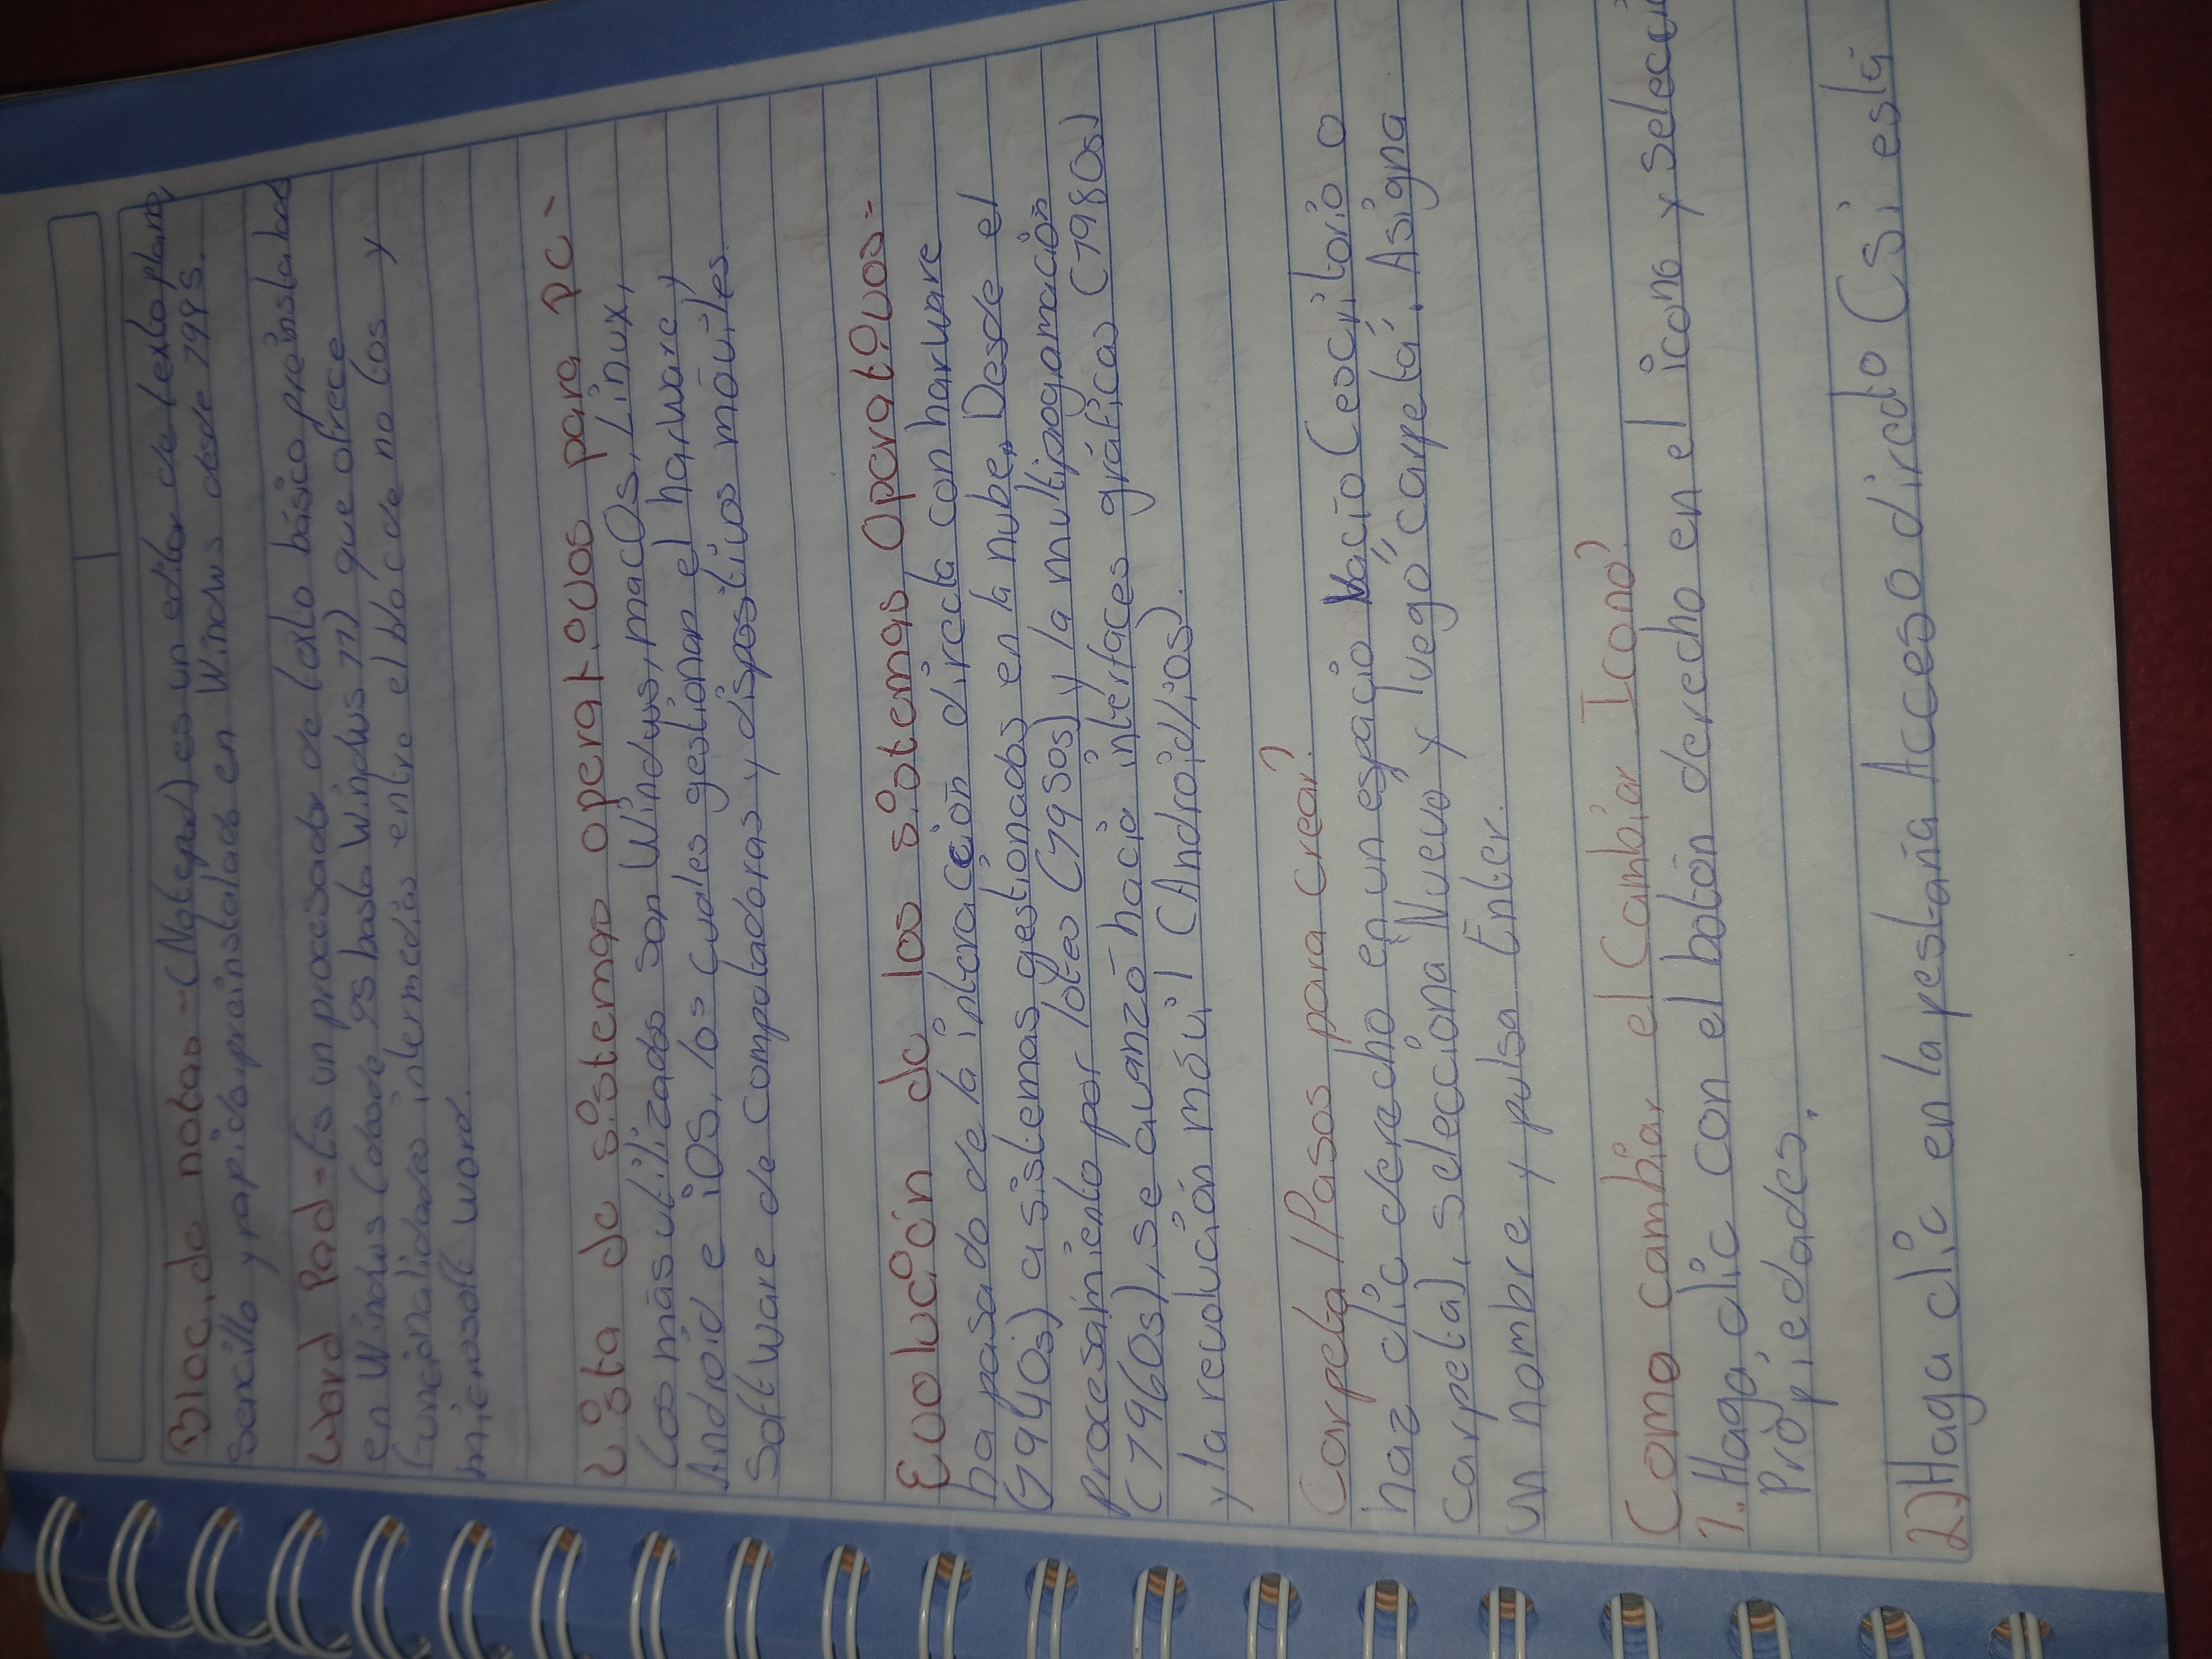 Bloc de notas - (Notepad) es un editor de texto plano,
Sencillo y rapido preinstalado en Windws desde 1985.
Word Pad - Es un procesador de texto básico preinstalado
en Windws (desde 95 hasta Windws 11) que ofrece
funcionalidades intermedias entre el bloc de notas y
microsoft word.
Lista de sistemas operativos para pc -
Los más utilizados son Windws, macOs, Linux,
Android e iOS, los cuales gestionan el harware y
Software de computadoras y dispositivos móviles.
Evolución de los sistemas Oparativos -
ha pasado de la interacción directa con harware
(1940s) a sistemas gestionados en la nube. Desde el
procesamiento por lotes (1950s) y la multiprogamación
(1960s), se avanzó hacia interfaces gráficas (1980s)
y la revolución móvil (Android/ios).
Carpeta / Pasos para crear?
haz clic derecho en un espacio Vacío (escritorio o
carpeta), selecciona Nuevo y luego "carpeta". Asigna
un nombre y pulsa Enter.
Como cambiar el Cambiar Icono?
1. Haga clic con el botón derecho en el icono y selecci
Propiedades.
2) Haga clic en la pestaña Acceso dircto (si está